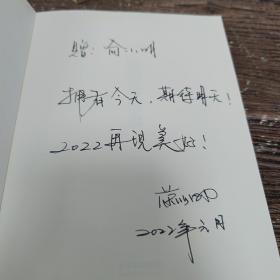 赠：俞小明
拥有今天，期待明天！
2022再现美好！
2022年六月